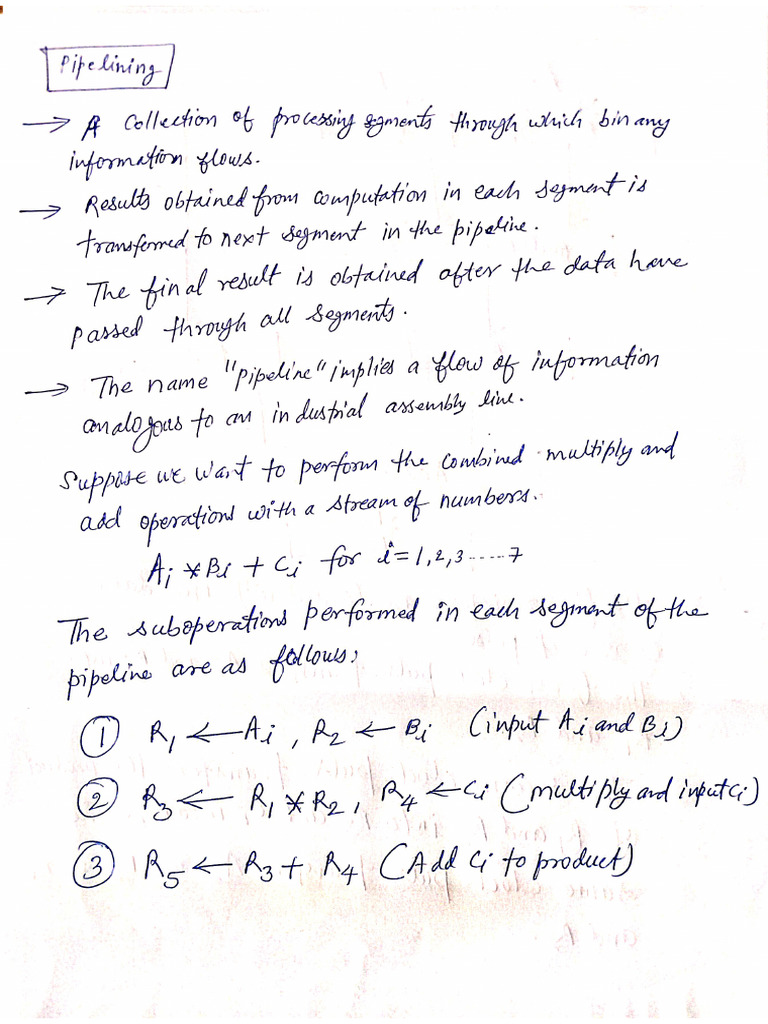 Pipelining
→ A Collection of processing segments through which binary
information flows.
→ Results obtained from computation in each segment is
transferred to next segment in the pipeline.
→ The final result is obtained after the data have
passed through all segments.
→ The name "pipeline" implies a flow of information
analogous to an industrial assembly line.
Suppose we want to perform the combined multiply and
add operations with a stream of numbers.
Ai * Bi + Ci for i = 1, 2, 3 ..... 7
The suboperations performed in each segment of the
pipeline are as follows;
① R1 ← Ai, R2 ← Bi (input Ai and Bi)
② R3 ← R1 * R2, R4 ← Ci (multiply and input Ci)
③ R5 ← R3 + R4 (Add Ci to product)